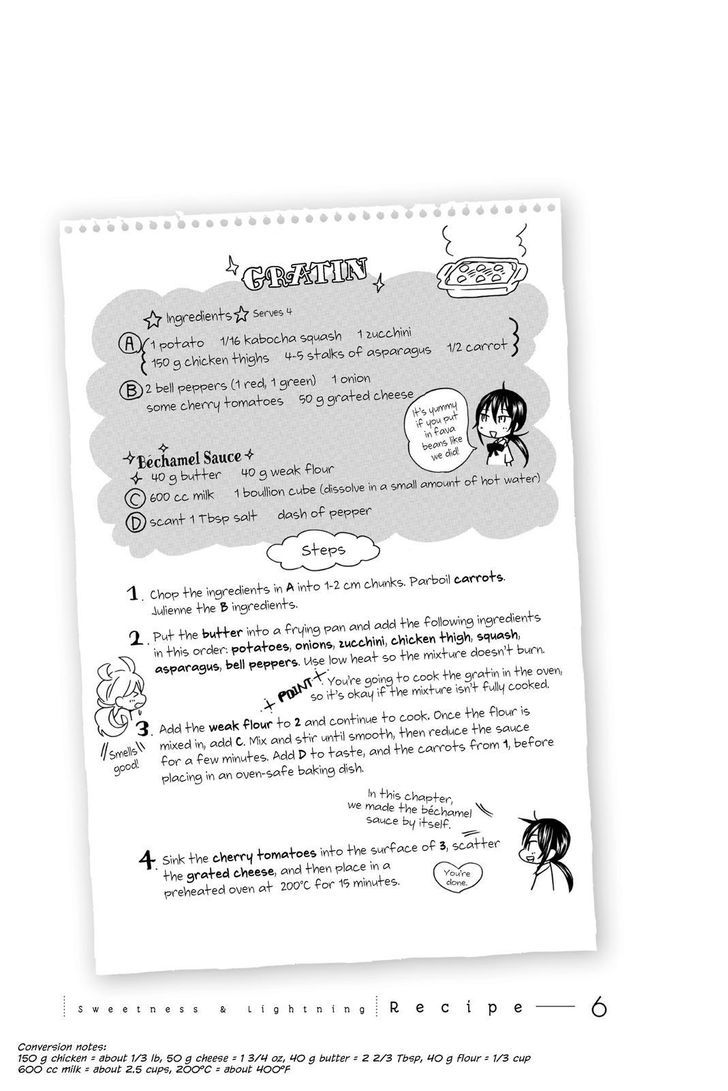 GRATIN
Ingredients Serves 4
A 1 potato 1/16 kabocha squash 1 zucchini
150 g chicken thighs 4-5 stalks of asparagus 1/2 carrot
B 2 bell peppers (1 red, 1 green) 1 onion
some cherry tomatoes 50 g grated cheese
It's yummy
if you put
in fava
beans like
we did!
Béchamel Sauce
40 g butter 40 g weak flour
C 600 cc milk 1 boullion cube (dissolve in a small amount of hot water)
D scant 1 Tbsp salt dash of pepper
Steps
1. Chop the ingredients in A into 1-2 cm chunks. Parboil carrots.
Julienne the B ingredients.
2. Put the butter into a frying pan and add the following ingredients
in this order: potatoes, onions, zucchini, chicken thigh, squash,
asparagus, bell peppers. Use low heat so the mixture doesn't burn.
POINT You're going to cook the gratin in the oven,
so it's okay if the mixture isn't fully cooked.
Smells
good!
3. Add the weak flour to 2 and continue to cook. Once the flour is
mixed in, add C. Mix and stir until smooth, then reduce the sauce
for a few minutes. Add D to taste, and the carrots from 1, before
placing in an oven-safe baking dish.
In this chapter,
we made the béchamel
sauce by itself.
4. Sink the cherry tomatoes into the surface of 3, scatter
the grated cheese, and then place in a
preheated oven at 200°C for 15 minutes.
You're
done.
Sweetness & Lightning Recipe 6
Conversion notes:
150 g chicken = about 1/3 lb, 50 g cheese = 1 3/4 oz, 40 g butter = 2 2/3 Tbsp, 40 g flour = 1/3 cup
600 cc milk = about 2.5 cups, 200°C = about 400°F